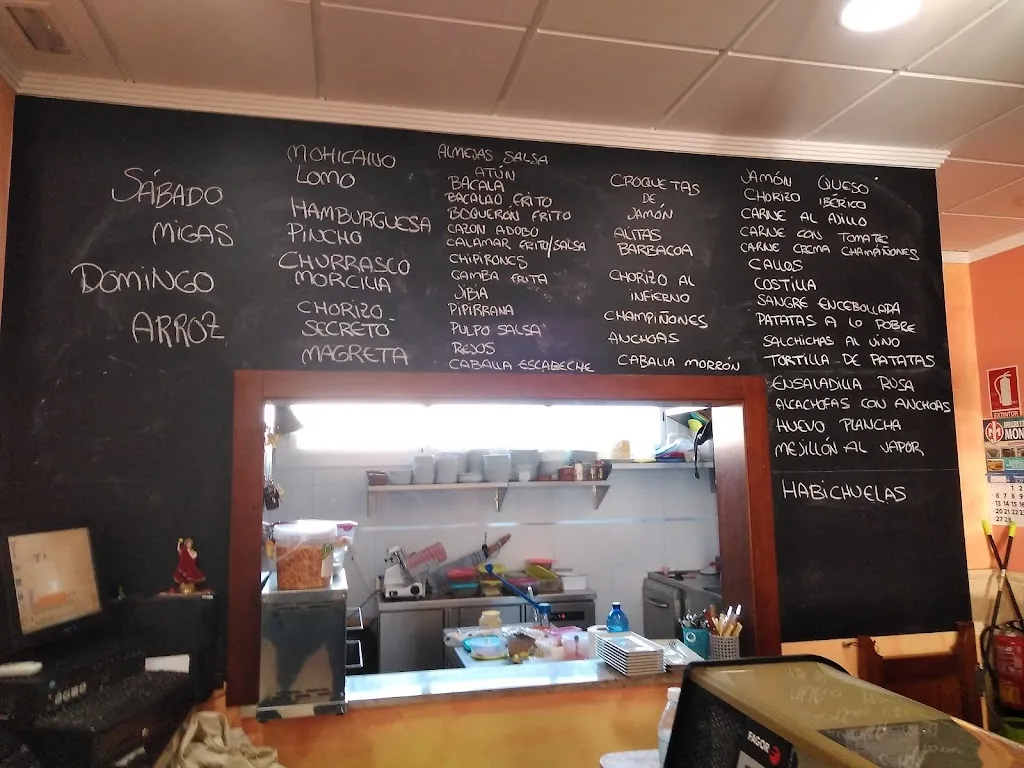 SÁBADO
MIGAS
DOMINGO
ARROZ
MOHICANO
LOMO
HAMBURGUESA
PINCHO
CHURRASCO
MORCILLA
CHORIZO
SECRETO
MAGRETA
ALMEJAS SALSA
ATÚN
BACALA
BACALAO FRITO
BOQUERÓN FRITO
CAZON ADOBO
CALAMAR FRITO/SALSA
CHIPIRONES
GAMBA FRITA
JIBIA
PIPIRRANA
PULPO SALSA
REJOS
CABALLA ESCABECHE
CROQUETAS
DE
JAMÓN
ALITAS
BARBACOA
CHORIZO AL
INFIERNO
CHAMPIÑONES
ANCHOAS
CABALLA MORRÓN
JAMÓN QUESO
CHORIZO IBÉRICO
CARNE AL AJILLO
CARNE CON TOMATE
CARNE CREMA CHAMPIÑONES
CALLOS
COSTILLA
SANGRE ENCEBOLLADA
PATATAS A LO POBRE
SALCHICHAS AL VINO
TORTILLA DE PATATAS
ENSALADILLA RUSA
ALCACHOFAS CON ANCHOAS
HUEVO PLANCHA
MEJILLÓN AL VAPOR
HABICHUELAS
EXTINTOR
FAGOR